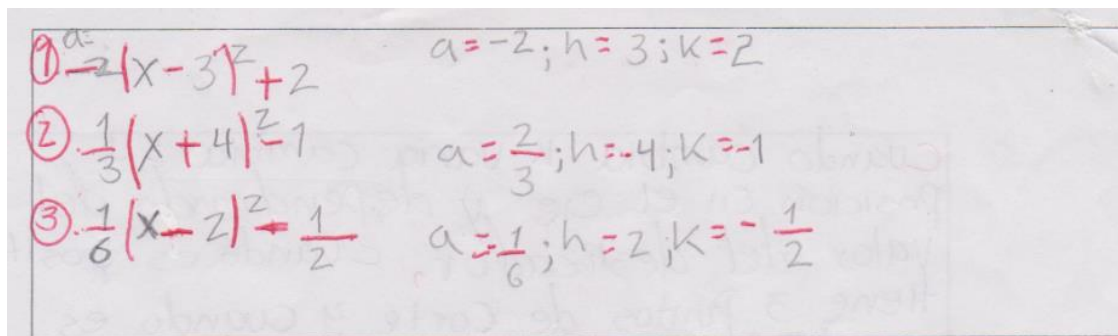 ① a= -2(x-3)²+2 a=-2; h=3; K=2
②. 1/3 (x+4)²-1 a=2/3; h=-4; K=-1
③. 1/6 (x-2)²-1/2 a=-1/6; h=2; K=-1/2